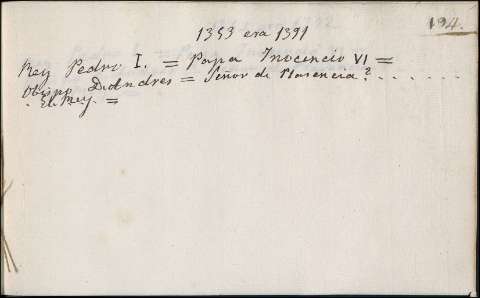 194.
1353 era 1391
Rey Pedro I. = Papa Inocencio VI =
Obispo D. Andres = Señor de Plasencia? . . . . . .
. El Rey. =